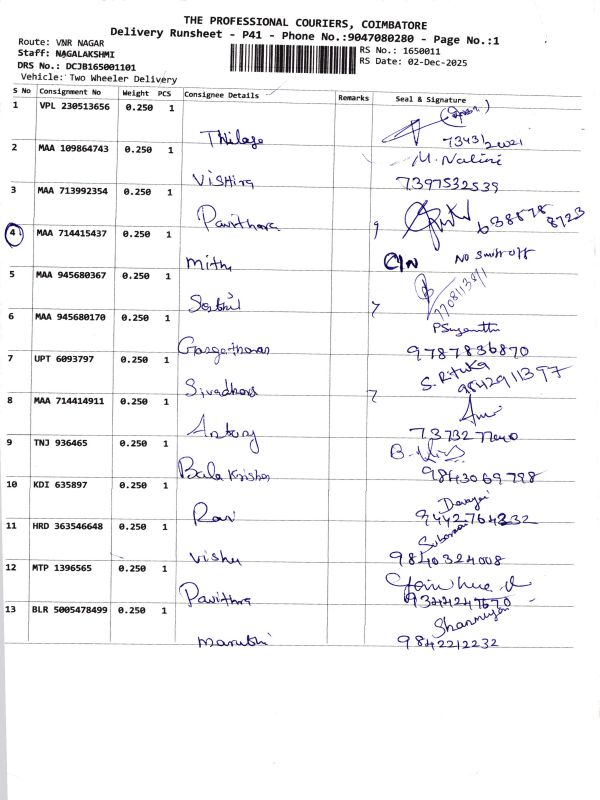 THE PROFESSIONAL COURIERS, COIMBATORE
Delivery Runsheet - P41 - Phone No.:9047080280 - Page No.:1
Route: VNR NAGAR
RS No.: 1650011
Staff: NAGALAKSHMI
RS Date: 02-Dec-2025
DRS No.: DCJB165001101
Vehicle: Two Wheeler Delivery
S No Consignment No Weight PCS Consignee Details Remarks Seal & Signature
1 VPL 230513656 0.250 1
Thilaga
2 MAA 109864743 0.250 1 M. Nalini
Vishira 7397532539
3 MAA 713992354 0.250 1
Pavithora
4 MAA 714415437 0.250 1 C/N No Swith off
Mithu
5 MAA 945680367 0.250 1
7708113811
6 MAA 945680170 0.250 1
9787836870
7 UPT 6093797 0.250 1 S. Rituka
Sivadhara 9842911397
8 MAA 714414911 0.250 1
Antony
9 TNJ 936465 0.250 1
Bala Krishna 9843069798
10 KDI 635897 0.250 1
Ravi 9442764332
11 HRD 363546648 0.250 1
vishu 9840324008
12 MTP 1396565 0.250 1
Pavithra
13 BLR 5005478499 0.250 1 Shanmugam
9842212232